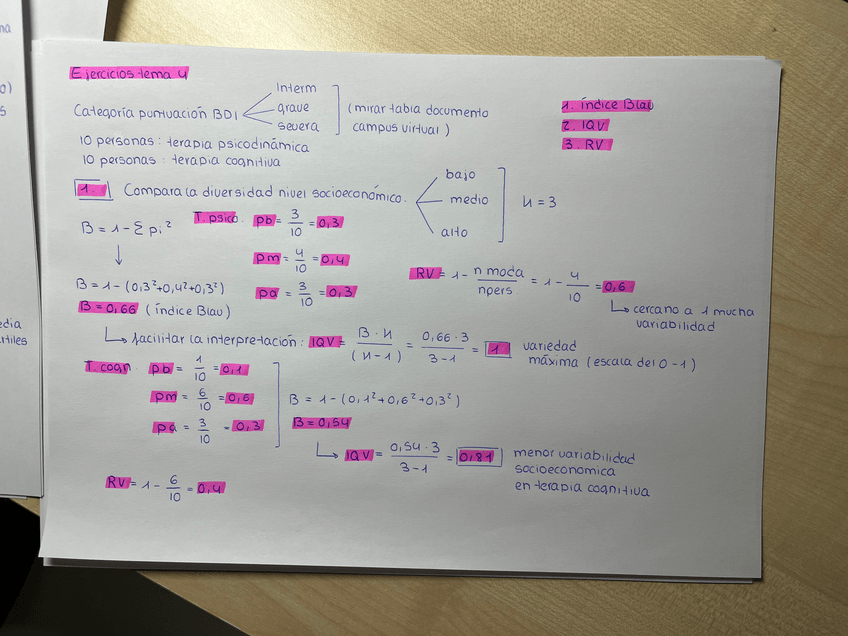 Ejercicios tema 4
Interm
Categoría puntuación BDI grave (mirar tabla documento
severa campus virtual)
1. índice Blau
2. IQV
3. RV
10 personas: terapia psicodinámica
10 personas: terapia cognitiva
1. Compara la diversidad nivel socioeconómico.
bajo
medio
alto
K = 3
B = 1 - Σ pi²
T. psico. pb = 3/10 = 0,3
pm = 4/10 = 0,4
pa = 3/10 = 0,3
B = 1 - (0,3² + 0,4² + 0,3²)
B = 0,66 (índice Blau)
RV = 1 - n moda/npers = 1 - 4/10 = 0,6
cercano a 1 mucha
variabilidad
facilitar la interpretación: IQV = B · K/(K - 1) = 0,66 · 3/3 - 1 = 1 variedad
máxima (escala del 0 - 1)
T. cogn. pb = 1/10 = 0,1
pm = 6/10 = 0,6
pa = 3/10 = 0,3
B = 1 - (0,1² + 0,6² + 0,3²)
B = 0,54
IQV = 0,54 · 3/3 - 1 = 0,81 menor variabilidad
socioeconomica
en terapia cognitiva
RV = 1 - 6/10 = 0,4